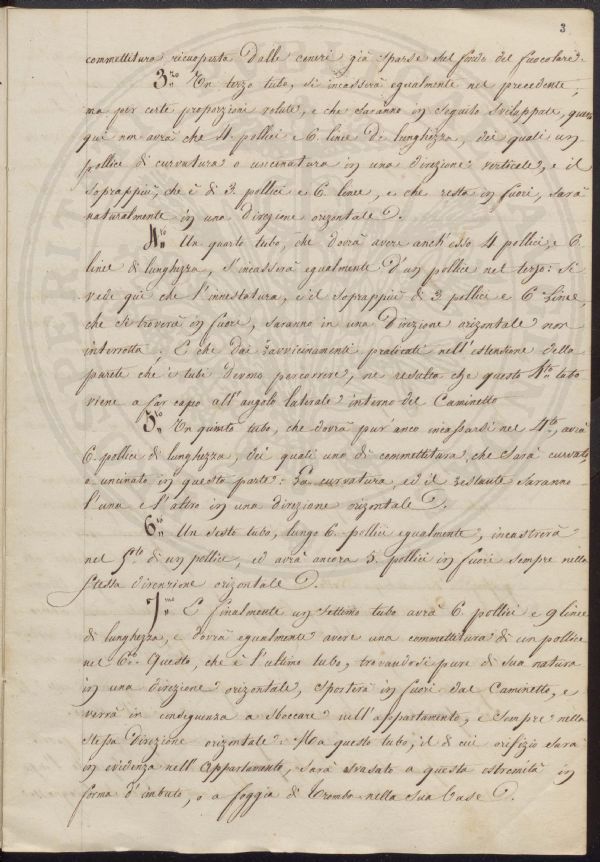 3
commettitura ricuoperta dalle ceneri già sparse sul fondo del fuocolare.
3.zo Un terzo tubo, si incasserà egualmente nel precedente,
ma per certe proporzioni volute, e che saranno in seguito sviluppate,
qui non avrà che 4 pollici e 6. linee di lunghezza, dei quali un
pollice di curvatura o uncinatura in una direzione verticale, e il
soprappiù, che è di 3. pollici e 6. linee, e che resta in fuori, sarà
naturalmente in una direzione orizontale.
4.to Un quarto tubo, che dovrà avere anch'esso 4 pollici, e 6.
linee di lunghezza, s'incasserà egualmente d'un pollice nel terzo: si
vede quì che l'innestatura, e'il soprappiù di 3 pollici e 6 linee,
che si troverà in fuori, saranno in una direzione orizontale non
interrotta, E che dai ravvicinamenti praticati nell'estensione della
parete che i tubi devono percorrere, ne resulta che questo 4.to tubo
viene a far capo all'angolo laterale interno del Caminetto
5.to Un quinto tubo, che dovrà pur'anco incassarsi nel 4.to, avrà
6. pollici di lunghezza, dei quali uno di commettitura, che sarà curvato,
o uncinato in questa parte: La curvatura, ed il restante saranno
l'una e l'altro in una direzione orizontale.
6.to Un sesto tubo, lungo 6. pollici egualmente, incastrerà
nel 5.to di un pollice, ed avrà ancora 5. pollici in fuori sempre nella
stessa direzione orizontale.
7.mo E finalmente un settimo tubo avrà 6. pollici e 9 linee
di lunghezza, e dovrà egualmente avere una commettitura di un pollice
nel 6.o Questo, che è l'ultimo tubo, trovandosi pure di sua natura
in una direzione orizontale, sporterà in fuori dal Caminetto, e
verrà in conseguenza a sboccare nell'appartamento, e sempre nella
stessa direzione orizontale: Ma questo tubo, il di cui orifizio sarà
in evidenza nell'Appartamento, sarà svasato a questa estremità in
forma d'imbuto, o a foggia di Tromba nella sua base.